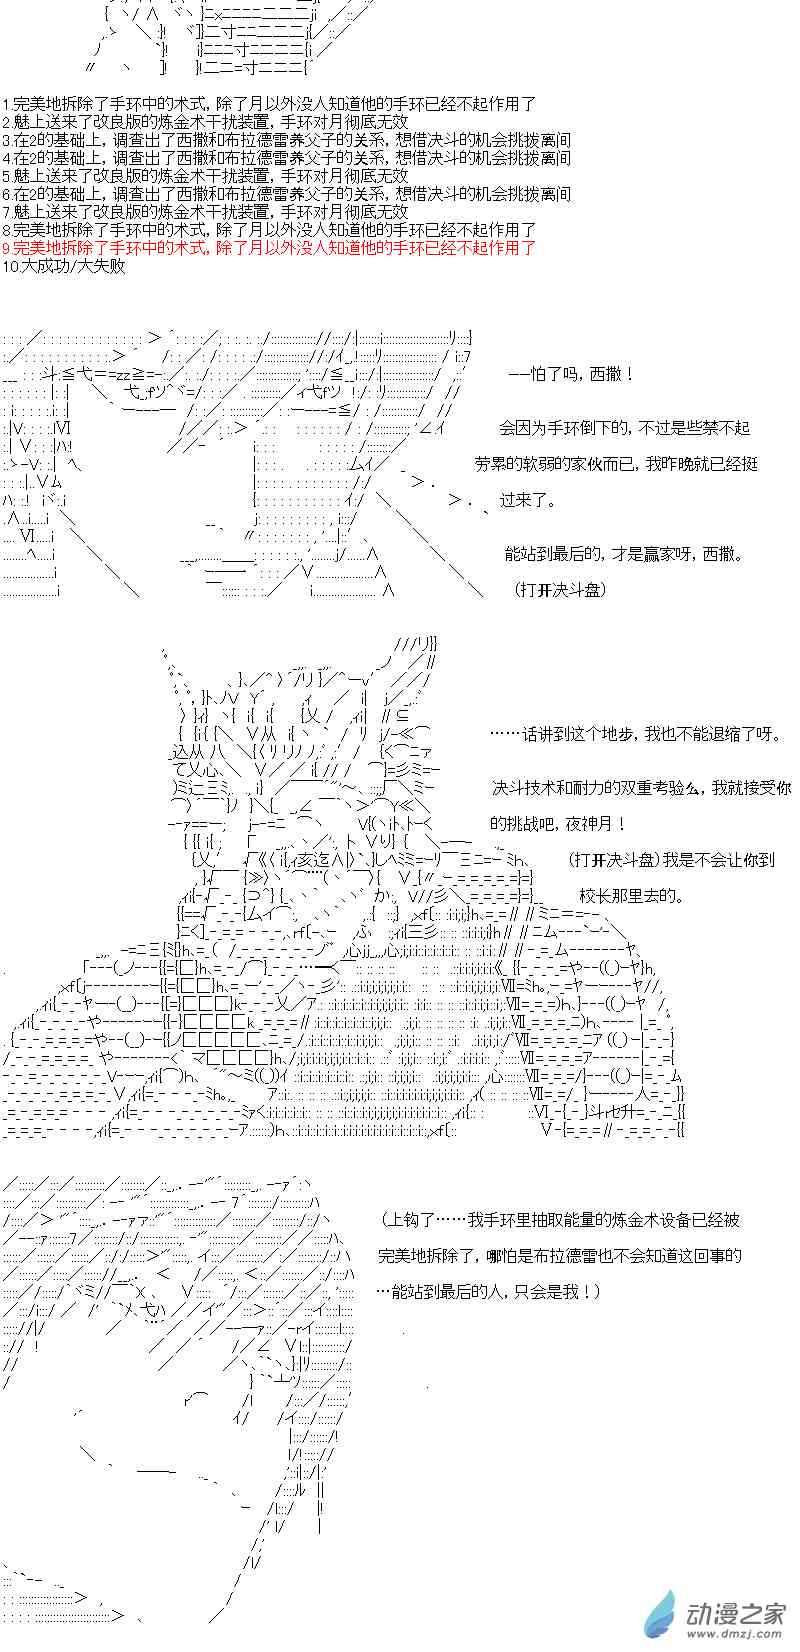 1.完美地拆除了手环中的术式，除了月以外没人知道他的手环已经不起作用了
2.魅上送来了改良版的炼金术干扰装置，手环对月彻底无效
3.在2的基础上，调查出了西撒和布拉德雷养父子的关系，想借决斗的机会挑拨离间
4.在2的基础上，调查出了西撒和布拉德雷养父子的关系，想借决斗的机会挑拨离间
5.魅上送来了改良版的炼金术干扰装置，手环对月彻底无效
6.在2的基础上，调查出了西撒和布拉德雷养父子的关系，想借决斗的机会挑拨离间
7.魅上送来了改良版的炼金术干扰装置，手环对月彻底无效
8.完美地拆除了手环中的术式，除了月以外没人知道他的手环已经不起作用了
9.完美地拆除了手环中的术式，除了月以外没人知道他的手环已经不起作用了
10.大成功/大失败
——怕了吗，西撒！
会因为手环倒下的，不过是些禁不起
劳累的软弱的家伙而已，我昨晚就已经挺
过来了。
能站到最后的，才是赢家呀，西撒。
（打开决斗盘）
……话讲到这个地步，我也不能退缩了呀。
决斗技术和耐力的双重考验么，我就接受你
的挑战吧，夜神月！
（打开决斗盘）我是不会让你到
校长那里去的。
（上钩了……我手环里抽取能量的炼金术设备已经被
完美地拆除了，哪怕是布拉德雷也不会知道这回事的
…能站到最后的人，只会是我！）
动漫之家
www.dmzj.com